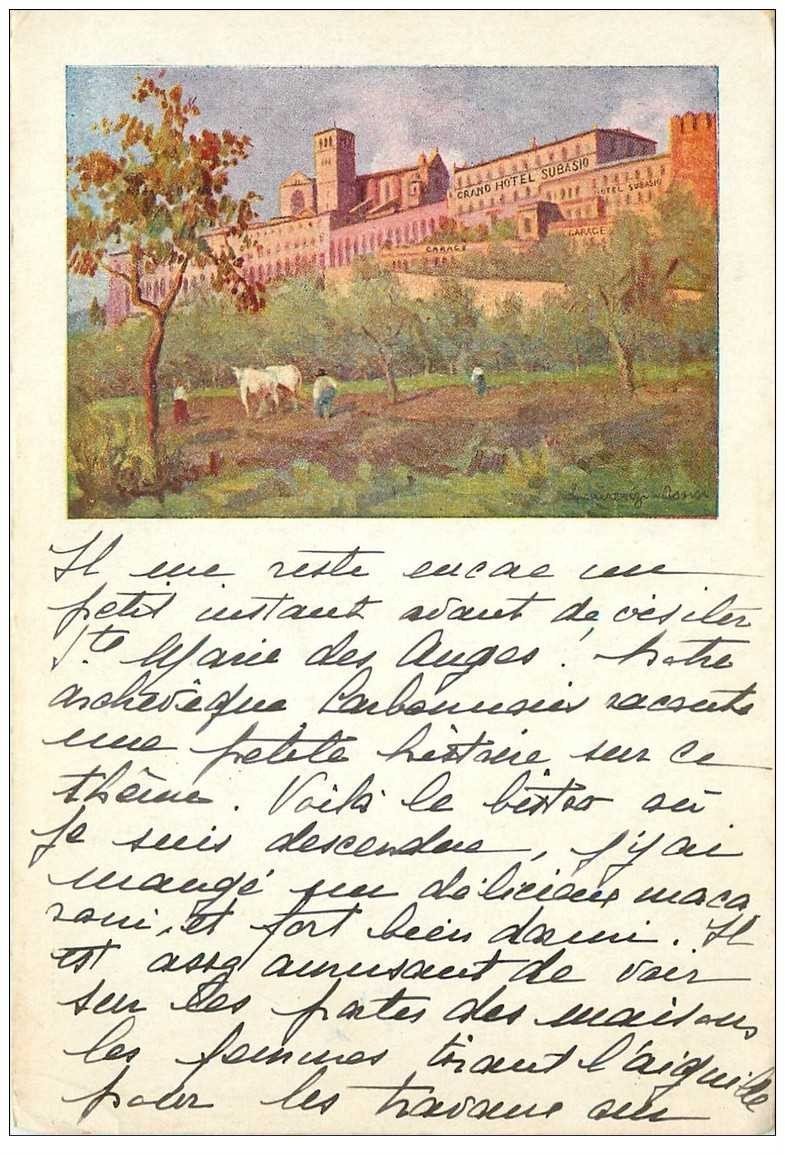 GRAND HOTEL SUBASIO
HOTEL SUBASIO
GARAGE
GARAGE
Il me reste encore un
petit instant avant de visiter
Ste Marie des Anges! Notre
archevêque raconte
une petite histoire sur ce
thème. Voilà le bistro où
je suis descendue, j'y ai
mangé un délicieux maca
roni, et fort bien dormi. Il
est assez amusant de voir
sur les portes des maisons
les femmes tirant l'aiguille
pour les travaux sur